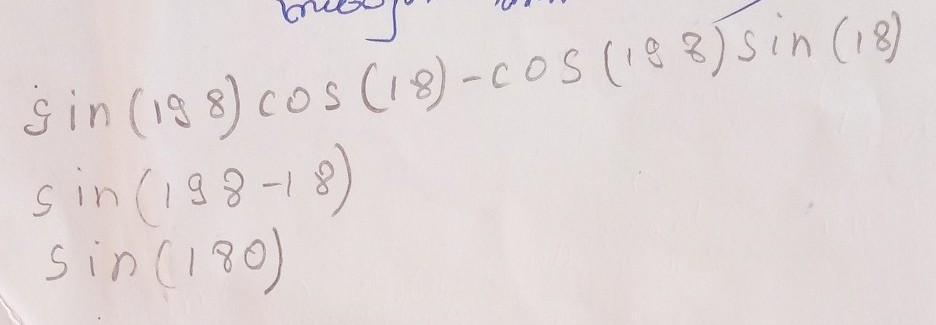 sin(198)cos(18)-cos(198)sin(18)
sin(198-18)
sin(180)